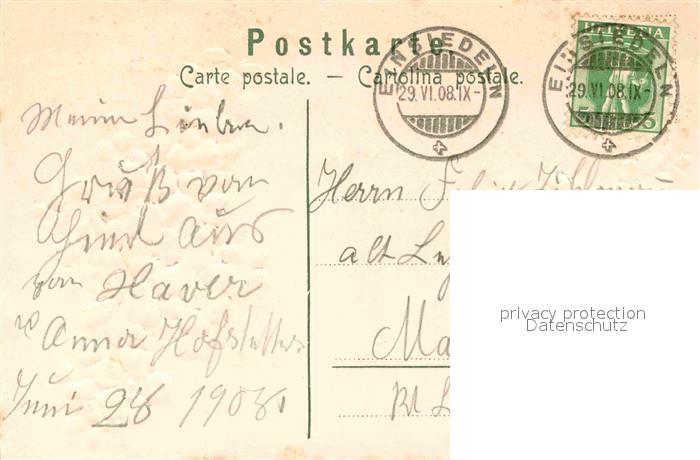 Postkarte.
Carte postale. — Cartolina postale.
HELVETIA
5 5
EINSIEDELN
29.VI.08.IX-
EINSIEDELN
29.VI.08.IX-
Meine Lieben.
Gruß von
aus
von Xaver
u Anna Hofstetter
Juni 28 1908.
Herrn
alt
Ma
Kt L
privacy protection
Datenschutz